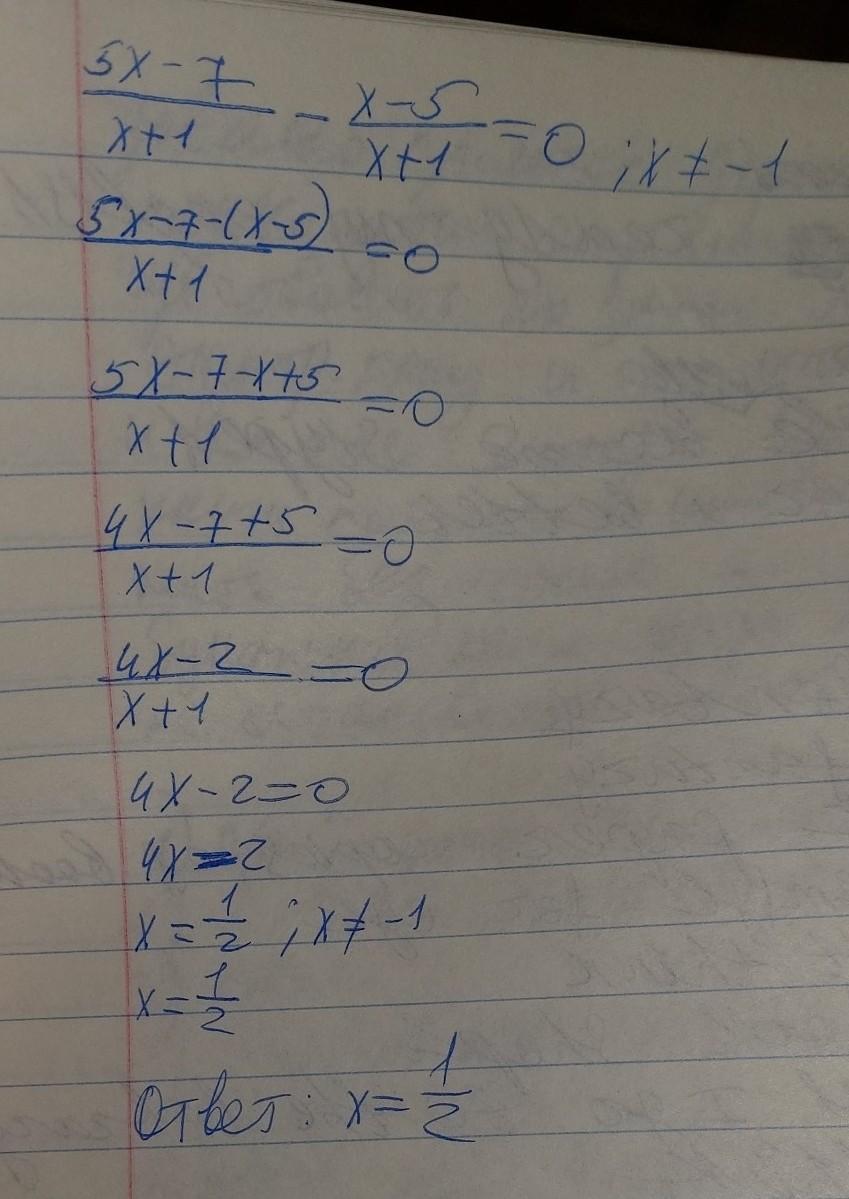 (5x-7)/(x+1) - (x-5)/(x+1) = 0 ; x ≠ -1
(5x-7-(x-5))/(x+1) = 0
(5x-7-x+5)/(x+1) = 0
(4x-7+5)/(x+1) = 0
(4x-2)/(x+1) = 0
4x-2=0
4x=2
x=1/2 ; x≠-1
x=1/2
Ответ: x=1/2